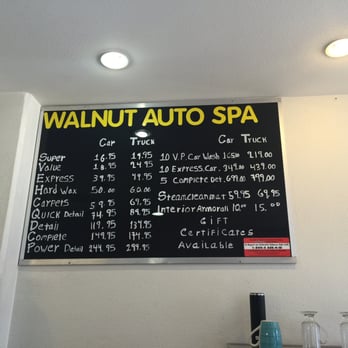 WALNUT AUTO SPA
Car Truck
Super 16.95 19.95
Value 18.95 24.95
Express 39.95 49.95
Hard Wax 50.00 60.00
Carpets 59.95 69.95
Quick Detail 74.95 84.95
Detail 119.95 139.95
Complete 149.95 174.95
Power Detail 249.95 299.95
Car Truck
10 V.P. Car Wash 219.00
10 Express. Car. 349.00 439.00
5 Complete Det. 699.00 799.00
Steamcleanmat 59.95 69.95
Interior Armorall 15.00
Gift
Certificates
Available